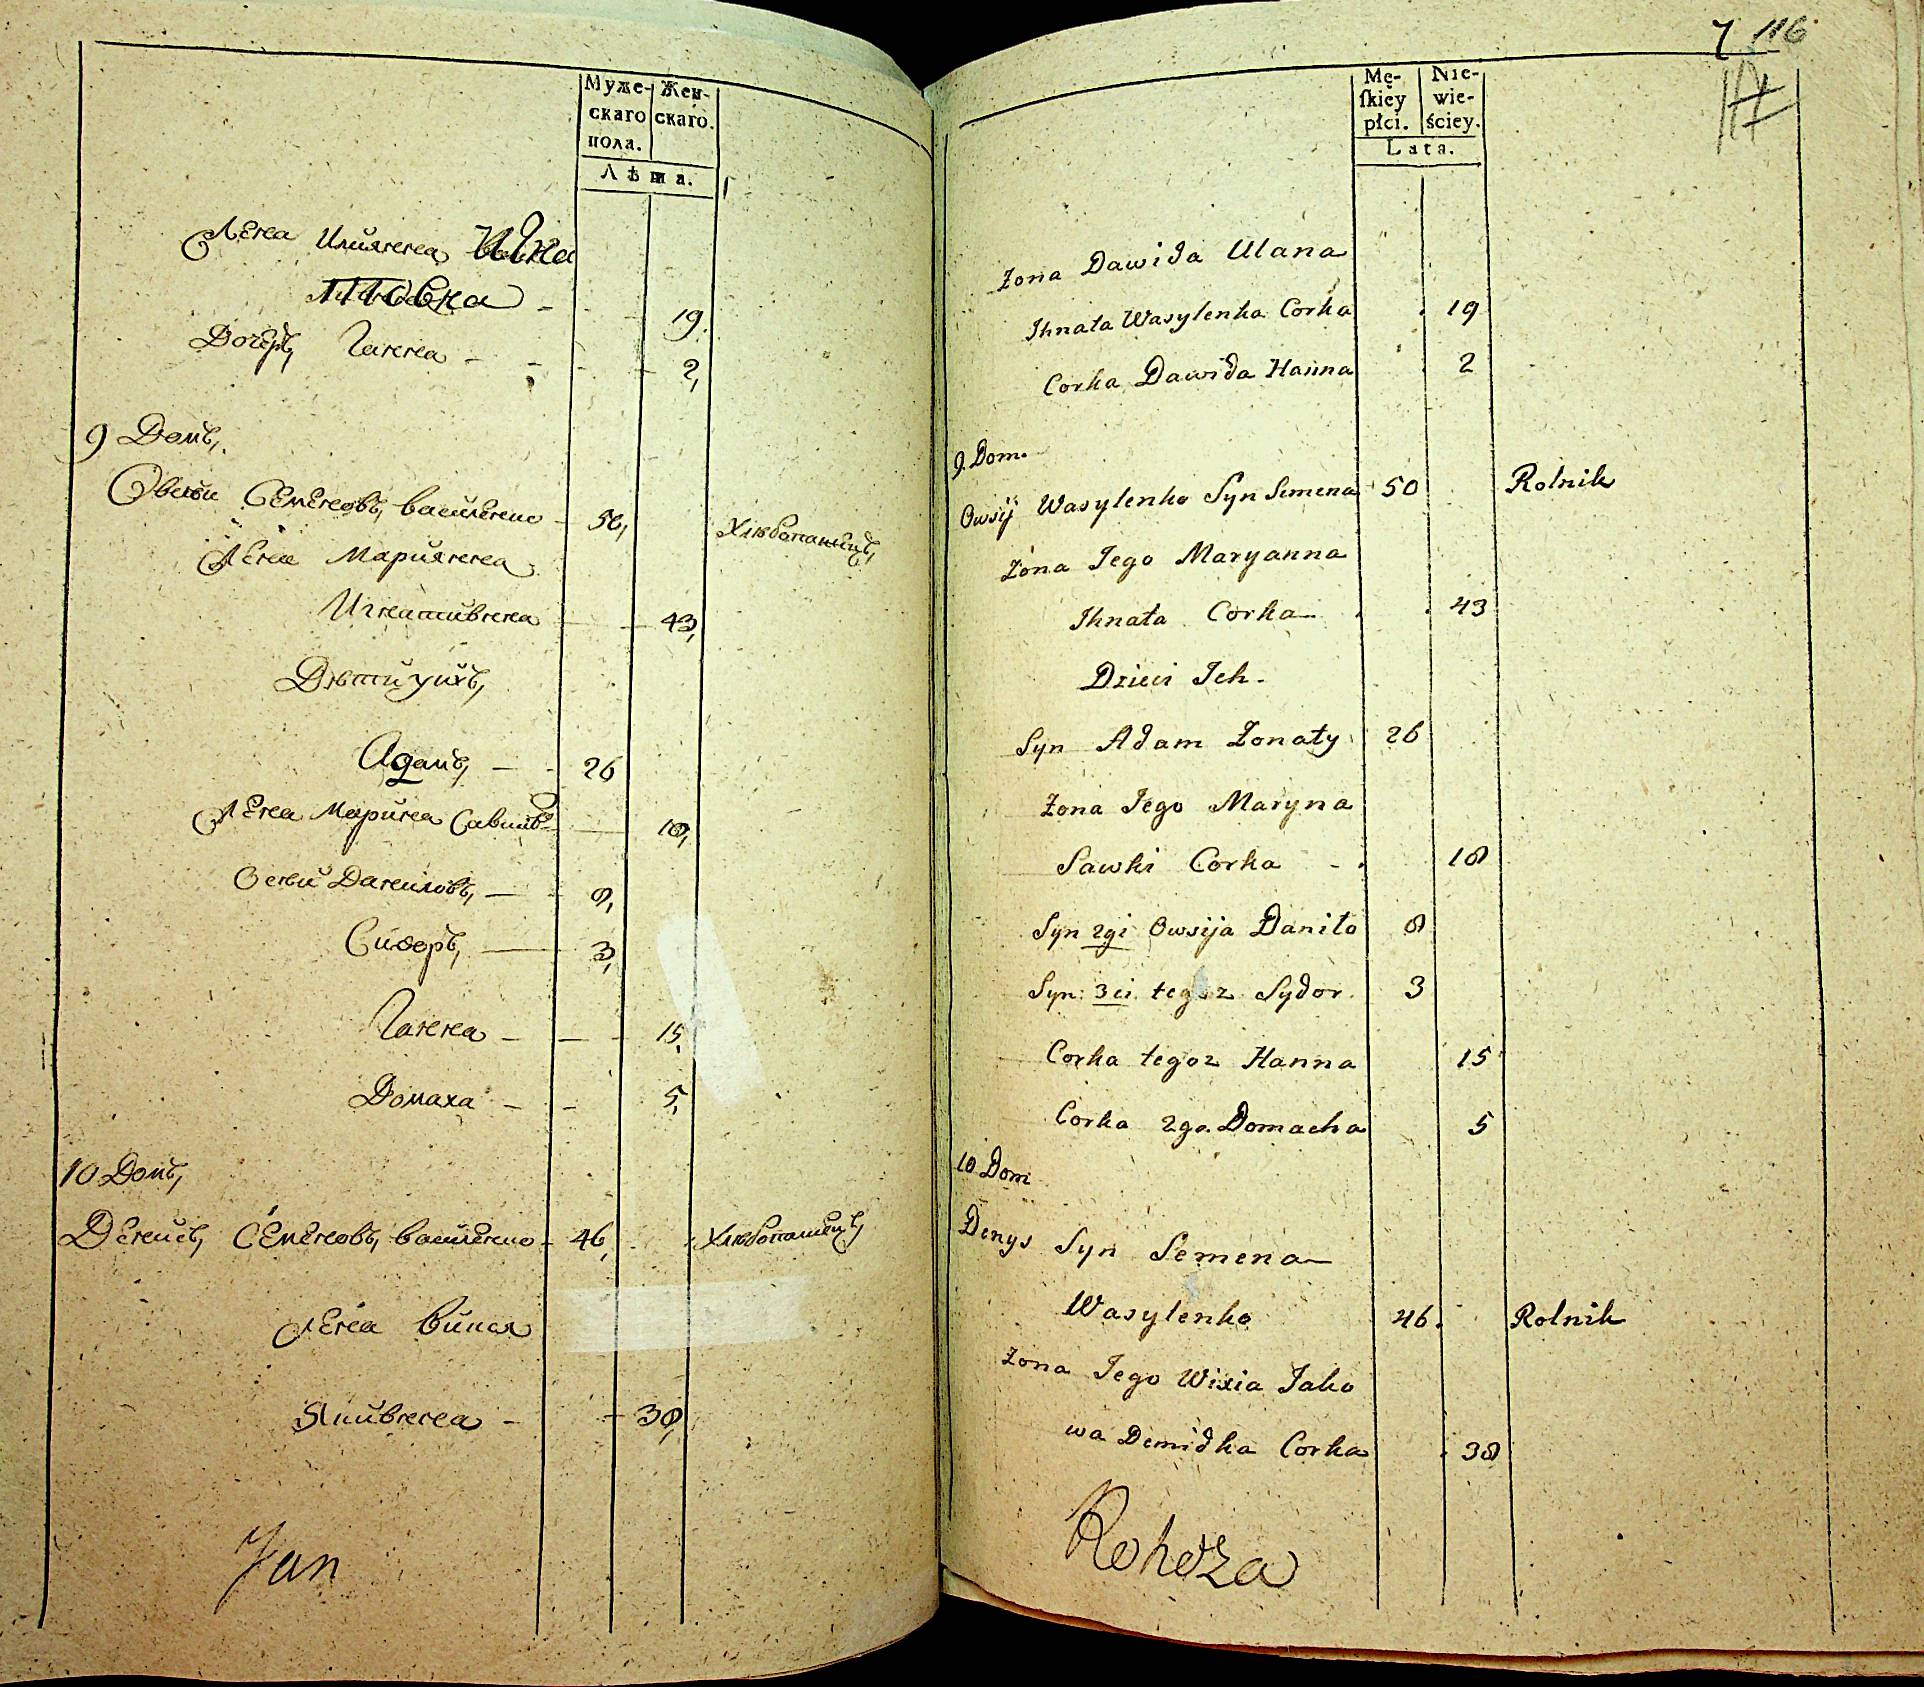 Муже-
скаго
пола.
Жен-
скаго.
Лѣта.
Жена Илияна
19.
Дочеръ Ганна 2,
9 Домъ,
Овсѣи Семеновъ, василенко 50, Хлѣбопашецъ,
Жена Марияна
Игнативна 43,
Дѣти ихъ,
Адамъ, 26
Жена Марина Савив 18,
Даниловъ, 8,
Сидоръ, 3,
Ганна 15,
Домаха 5,
10 Домъ,
Денисъ, Семеновъ, василенко 46, Хлѣбопашецъ,
Жена вивдя
Яковвна 38,
Jan
7 116
Mę-
ſkiéy
płci.
Nie-
wie-
ściey.
Lata.
Żona Dawida Ulana
Ihnata Wasylenka Corka 19
Corka Dawida Hanna 2
9. Dom.
Owsij Wasylenko Syn Semena 50 Rolnik
Żona Jego Maryanna
Ihnata Corka 43
Dzieci Ich
Syn Adam Żonaty 26
Żona Jego Maryna
Sawki Corka 18
Syn 2gi Owsija Daniło 8
Syn 3ci tegoz Sydor 3
Corka tegoz Hanna 15
Corka 2ga Domacha 5
10 Dom
Denys Syn Semena
Wasylenko 46. Rolnik
Żona Jego Wixia Jako
wa Demidka Corka 38
Rohoza